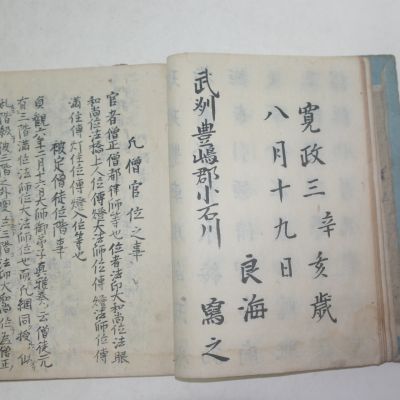 寛政三辛亥歳
八月十九日
良海
武州豊嶋郡小石川 寫之
凢僧官位之事
官者僧正僧都律師等也位者法印大和尚位法眼
和尚位法橋上人位傳燈大法師位傳燈法師位傳
燈滿位傳燈住位傳燈入位等也
被定僧徒位階事
貞觀六年二月十六日
有三階滿位法師位大法師位也